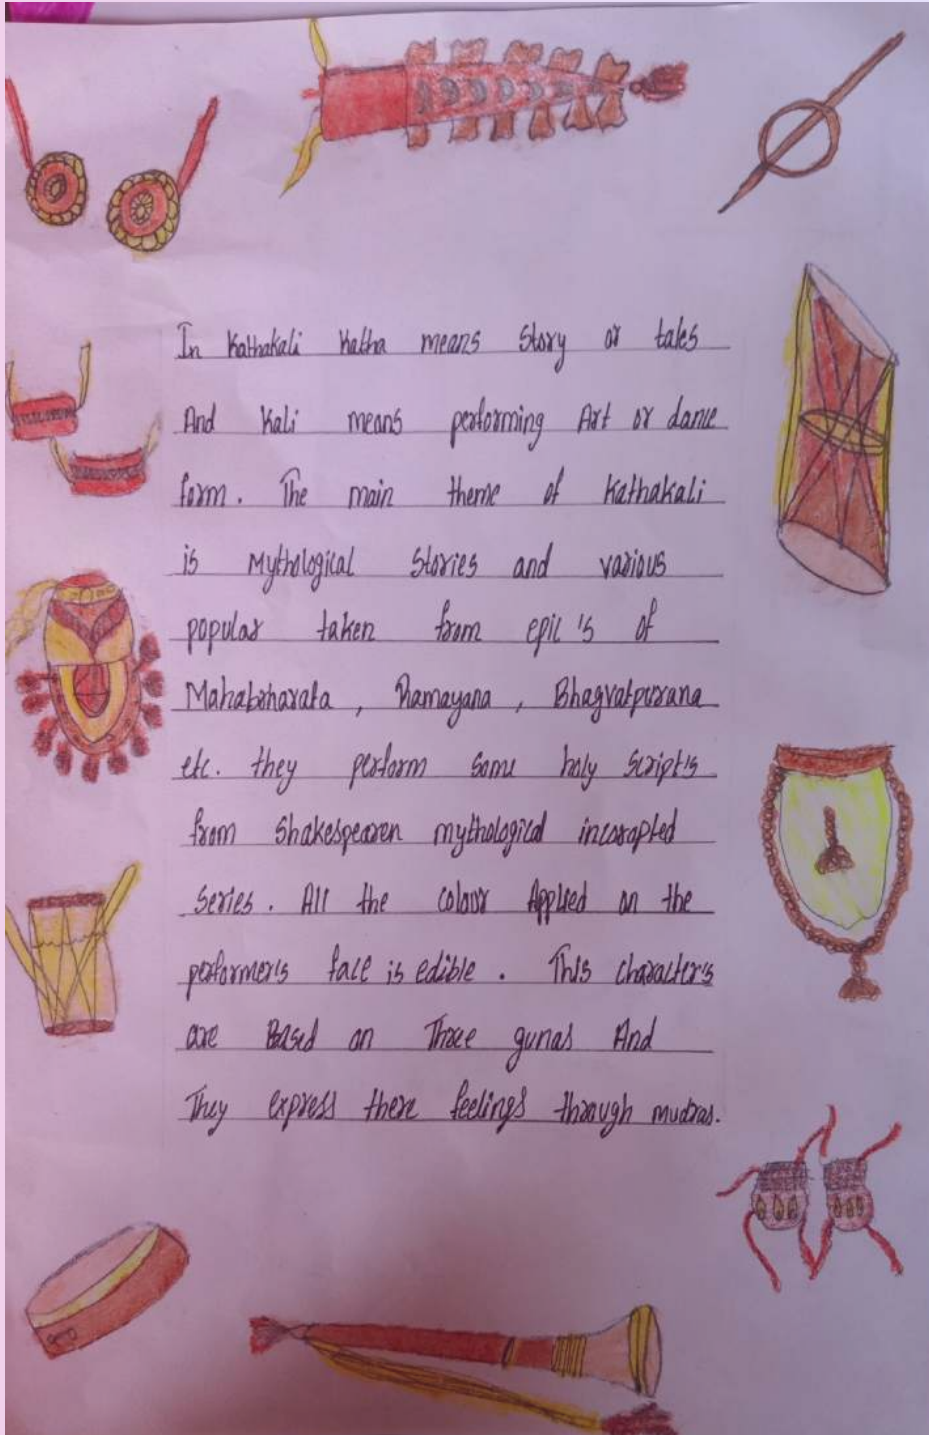 In Kathakali Katha means Story or tales
And Kali means performing Art or dance
form. The main theme of Kathakali
is Mythological Stories and various
popular taken from epic's of
Mahabharata, Ramayana, Bhagvatpurana
etc. they perform some holy script's
from Shakespearen mythological incorapted
series. All the colour Applied on the
performer's face is edible. This character's
are Based on Three gunas And
They express there feelings through mudras.